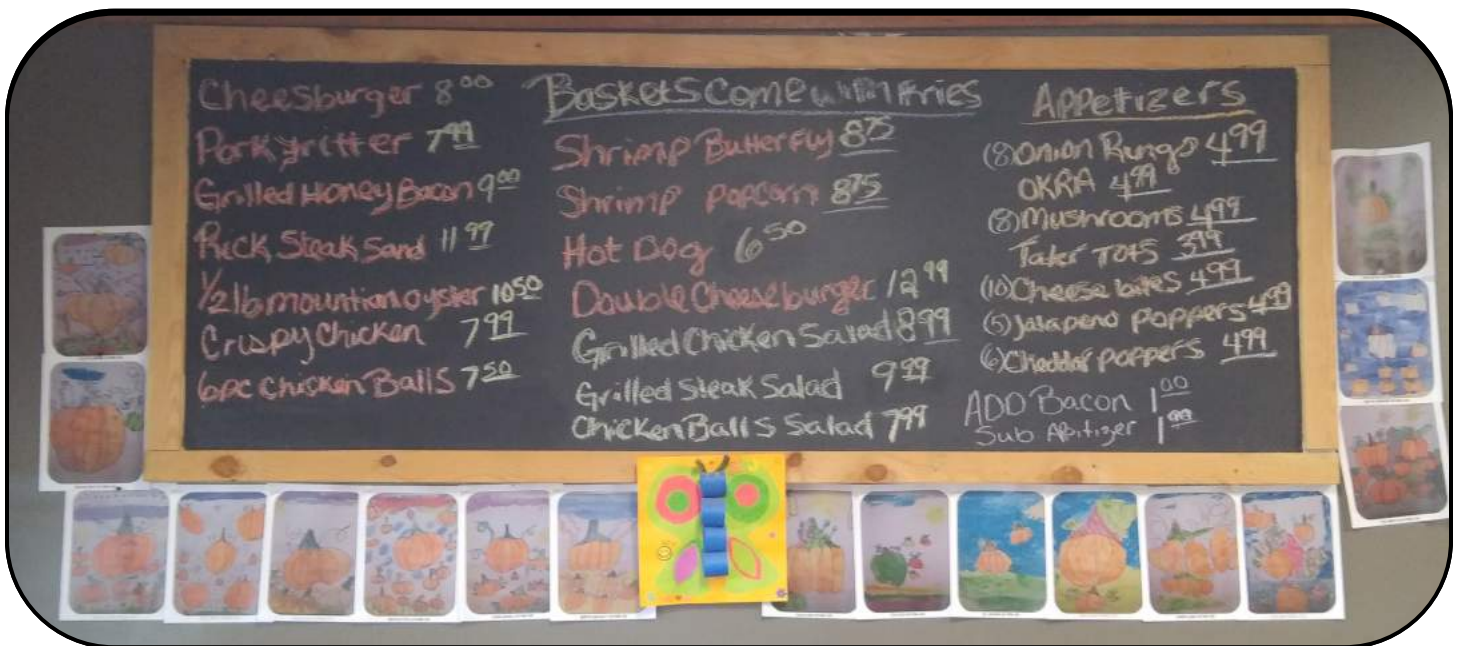 Cheesburger 8.00
Porkfritter 7.99
Grilled Honey Bacon 9.00
Rick Steak Sand 11.99
1/2 lb mountian oyster 10.50
Crispy Chicken 7.99
6pc Chicken Balls 7.50
Baskets Come with Fries
Shrimp Butterfly 8.75
Shrimp Popcorn 8.75
Hot Dog 6.50
Double Cheeseburger 12.99
Grilled Chicken Salad 8.99
Grilled Steak Salad 9.99
Chicken Balls Salad 7.99
Appetizers
(8) Onion Rings 4.99
OKRA 4.99
(8) Mushrooms 4.99
Tater Tots 3.99
(10) Cheese bites 4.99
(5) Jalapeno Poppers 4.99
(6) Cheddar poppers 4.99
ADD Bacon 1.00
Sub Apitizer 1.99